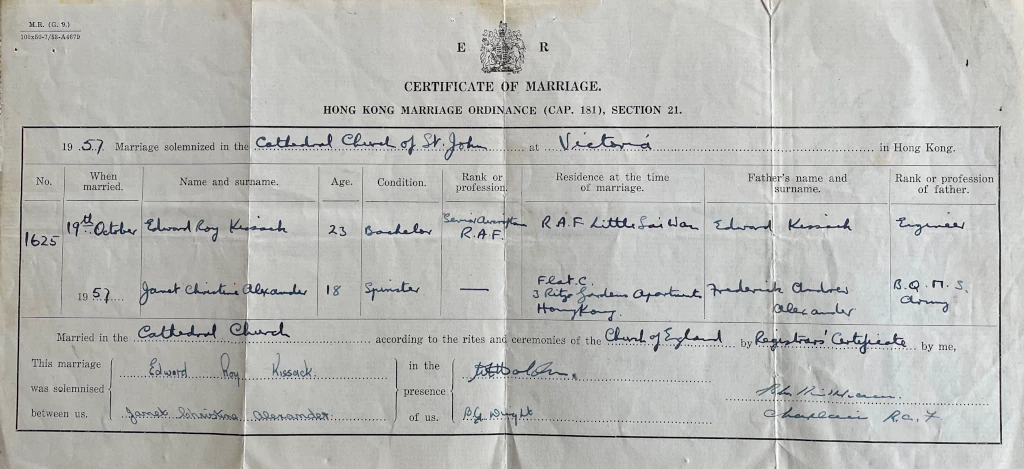 M.R. (G. 9.)
E R
CERTIFICATE OF MARRIAGE.
HONG KONG MARRIAGE ORDINANCE (CAP. 181), SECTION 21.
1957 Marriage solemnized in the Cathedral Church of St. John at Victoria in Hong Kong.
No. When married. Name and surname. Age. Condition. Rank or profession. Residence at the time of marriage. Father's name and surname. Rank or profession of father.
1625 19th October Edward Roy Kissack 23 Bachelor R.A.F. R.A.F Little Sai Wan Edward Kissack Engineer
1957 Janet Christine Alexander 18 Spinster — Flat C. 3 Ritz Gardens Apartments Hong Kong. Frederick Andrew Alexander B.Q.M.S. Army
Married in the Cathedral Church according to the rites and ceremonies of the Church of England by Registrars' Certificate by me,
This marriage was solemnised between us.
Edward Roy Kissack.
Janet Christine Alexander
in the presence of us.
Chaplain